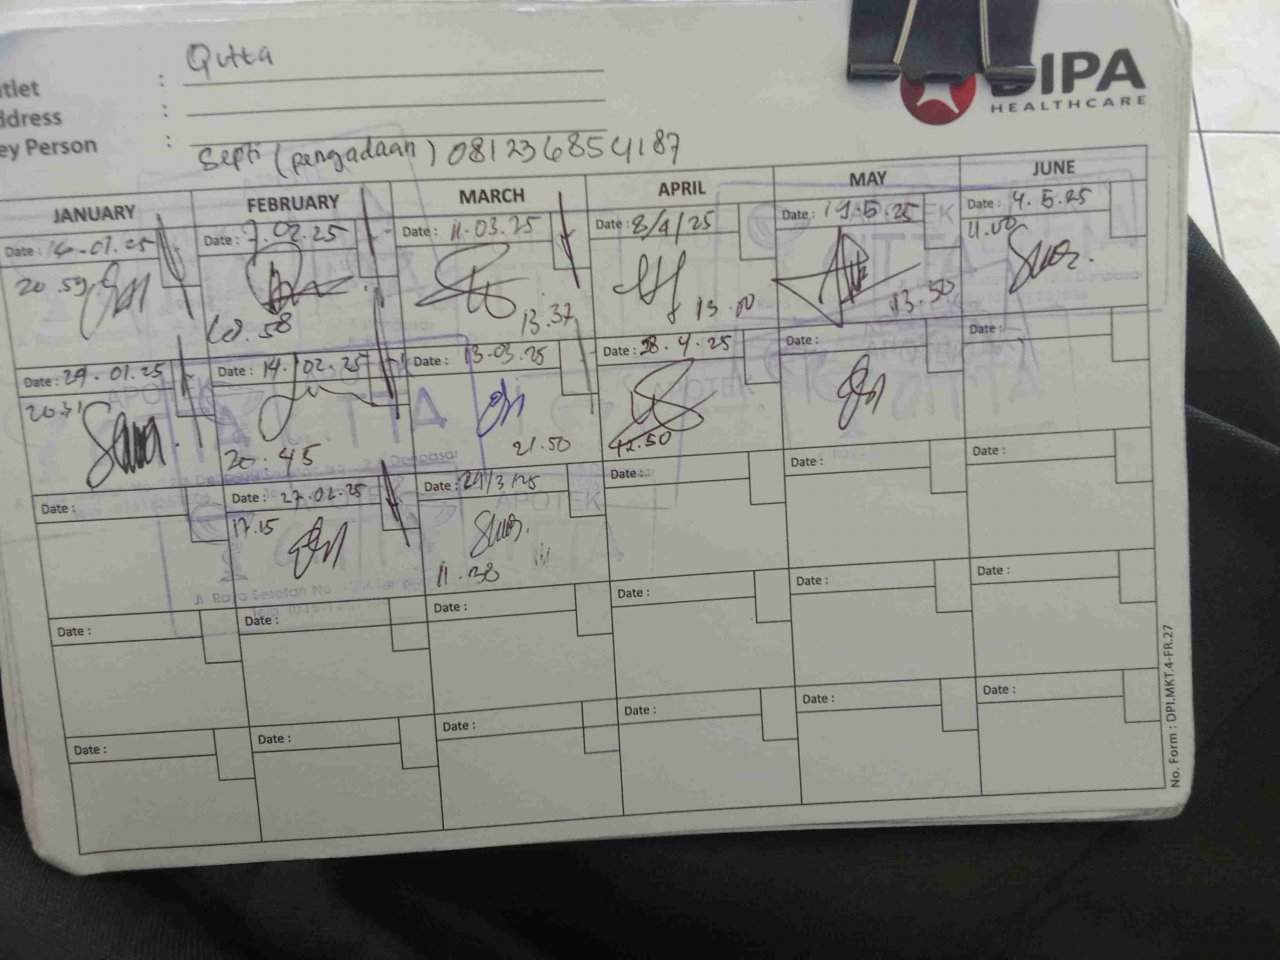 Qutta
DIPA
HEALTHCARE
tlet :
ddress :
ey Person :
Septi (pengadaan) 081236854187
JANUARY FEBRUARY MARCH APRIL MAY JUNE
Date : 16-01.25 Date : 7.02.25 Date : 11.03.25 Date : 8/4/25 Date : 19.5.25 Date : 4.5.25
20.59 13.37 13.00 13.50 11.00
Date : 29.01.25 Date : 14/02.25 Date : 13.03.25 Date : 28.4.25 Date : Date :
20.31 20.45 21.50 12.50
Date : Date : 27.02.25 Date : 24/3/25 Date : Date : Date :
17.15 11.38
APOTEK
Date : Date : Date : Date : Date : Date :
Date : Date : Date : Date : Date : Date :
No. Form : DPI.MKT.4-FR.27